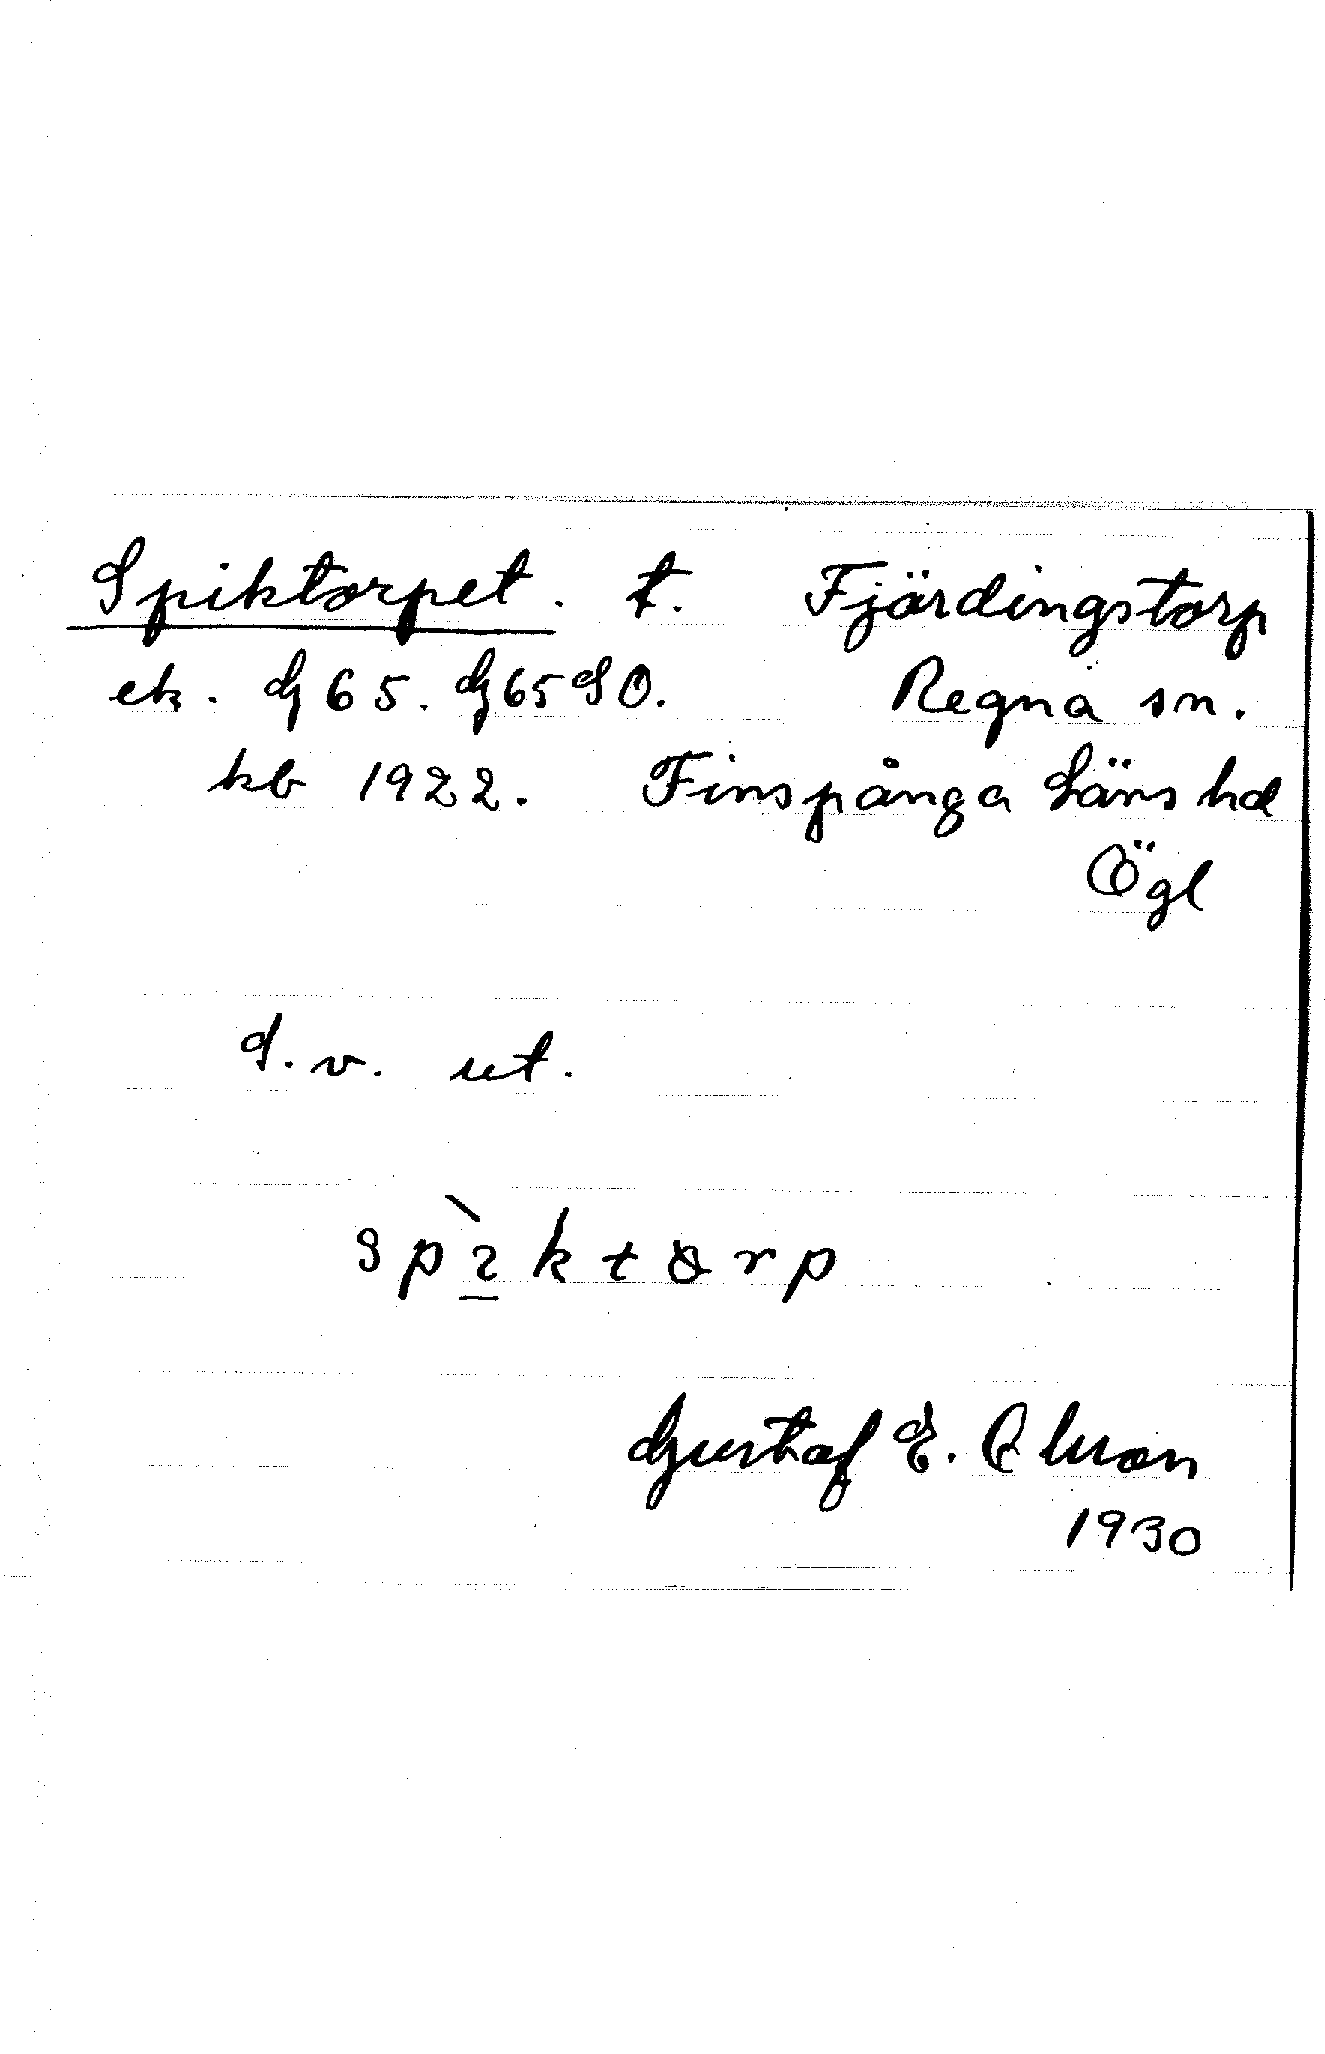 Spiktorpet. t. Fjärdingstorp
ek. G 65. G65SO. Regna sn.
kb 1922. Finspånga Läns hd
Ögl
d.v. ut.
spìktørp
Gustaf E. Olson
1930